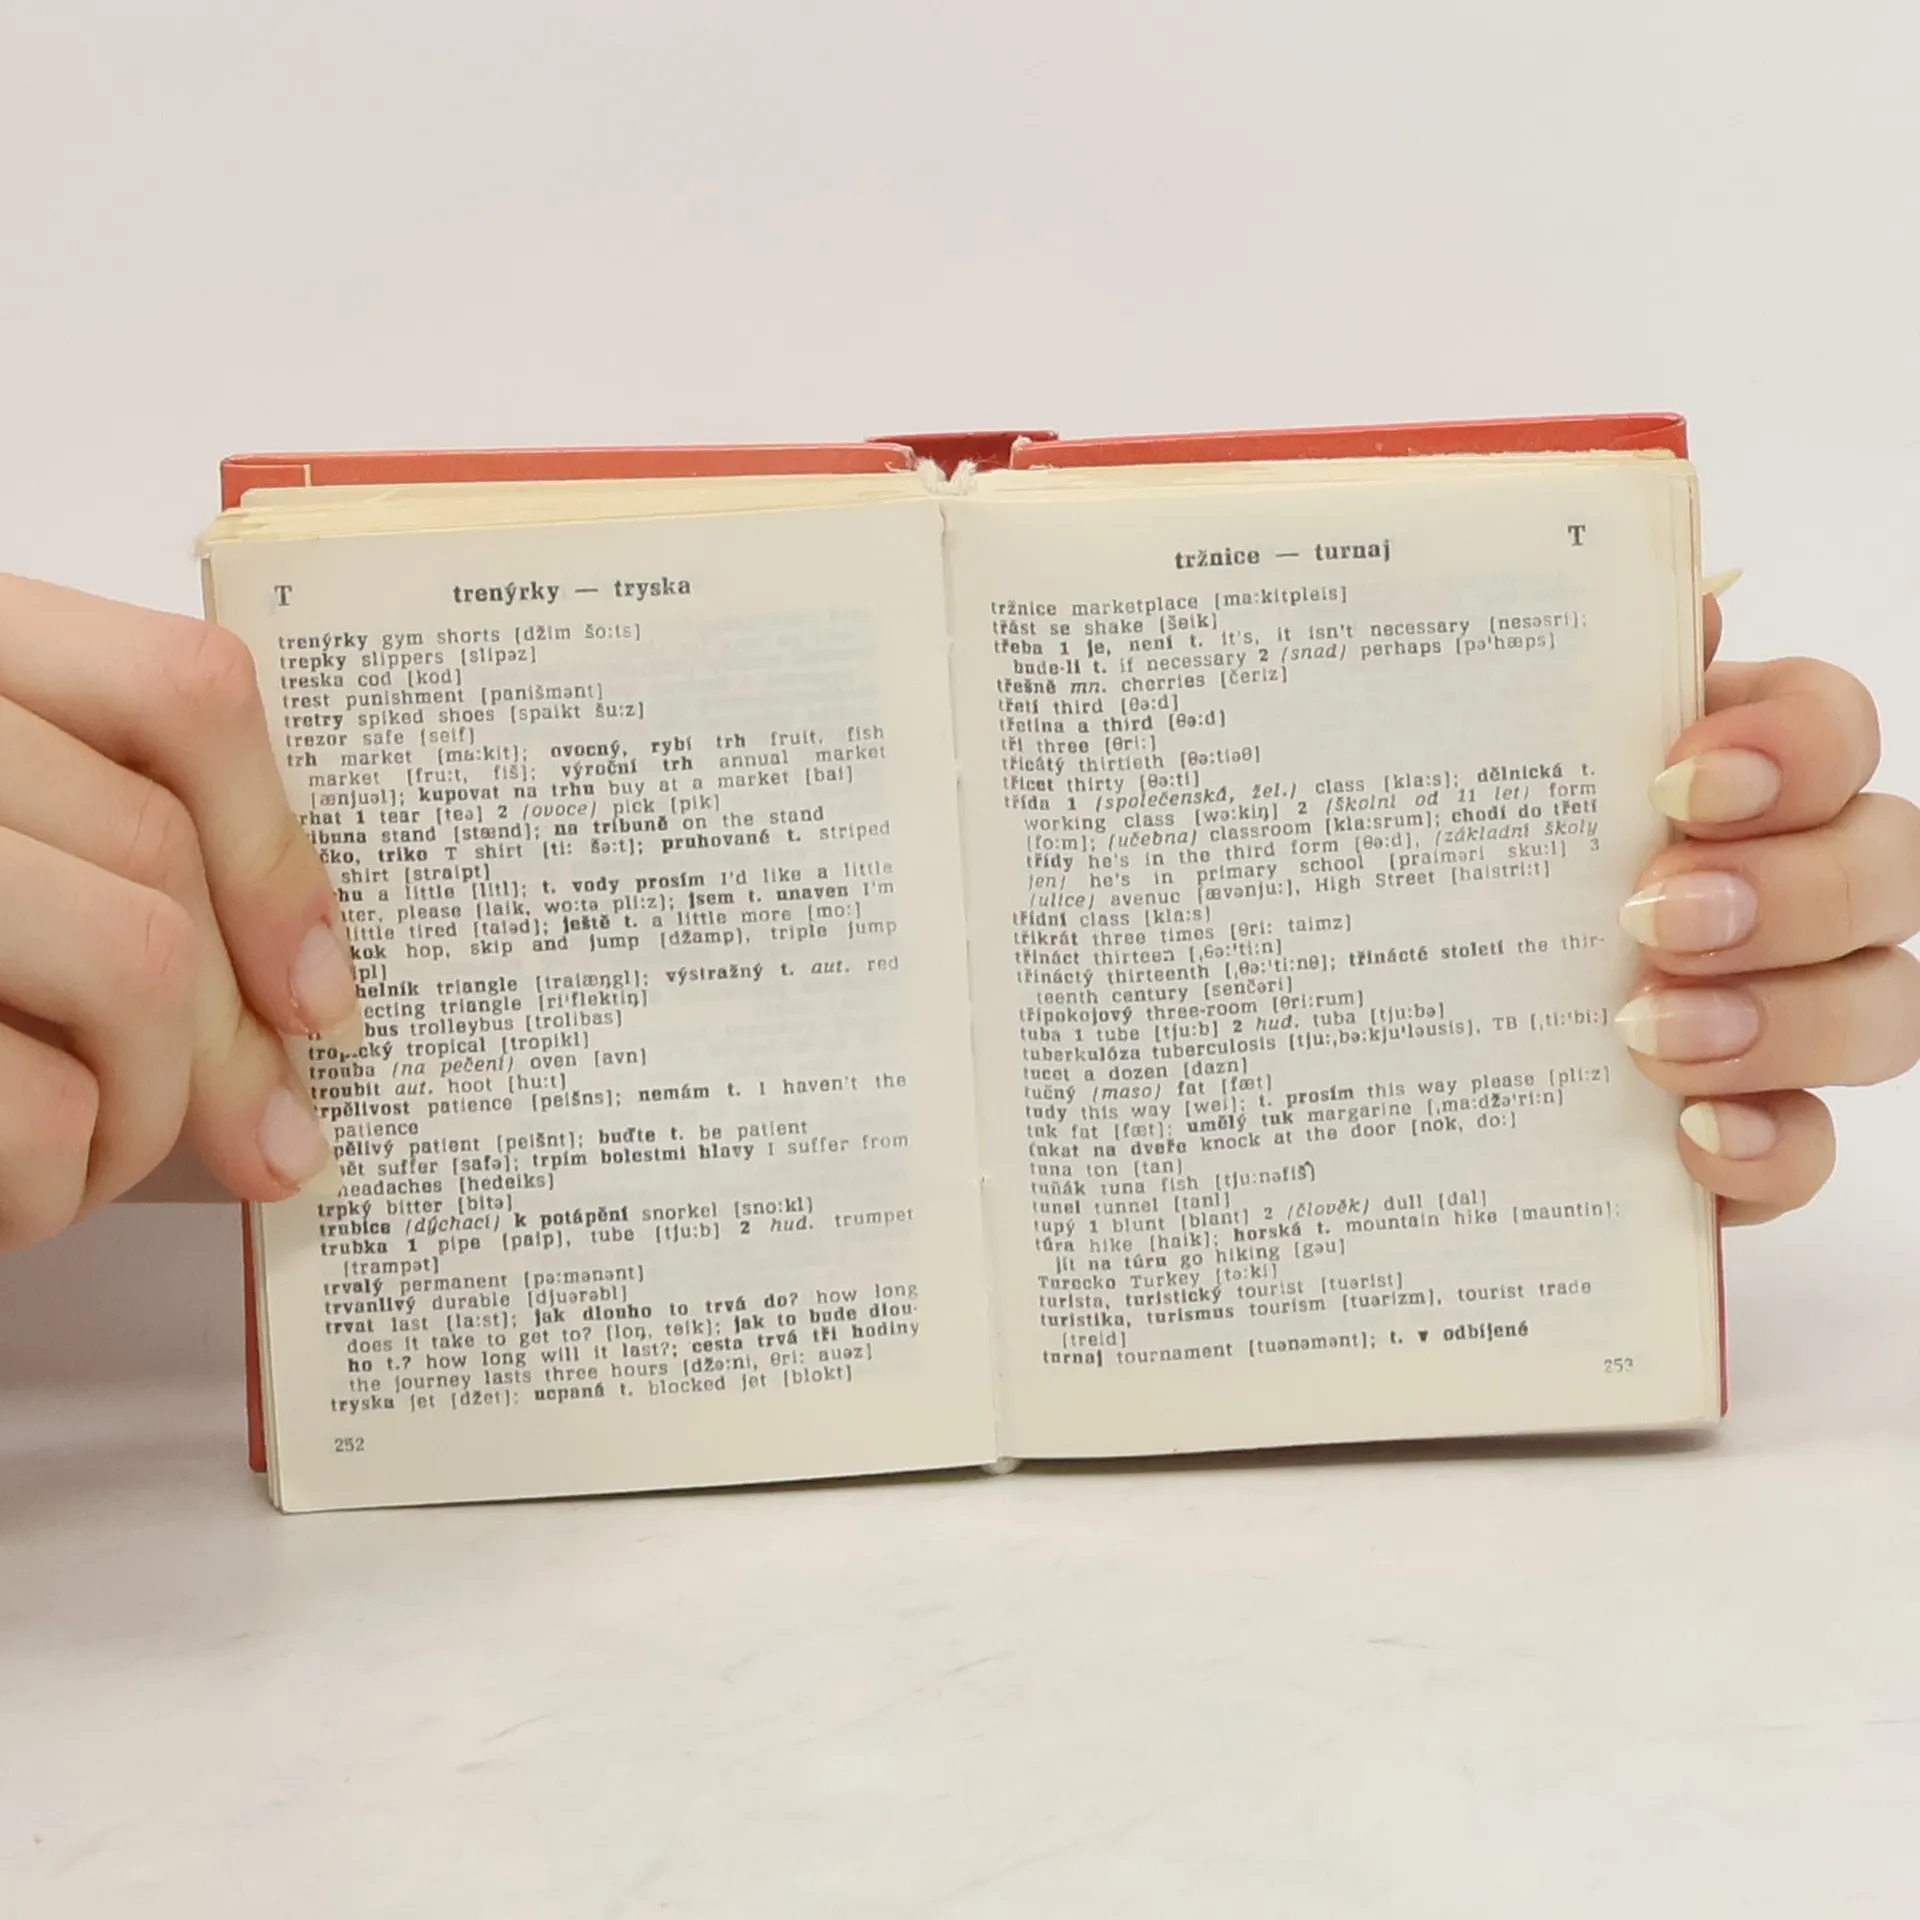 T
trenýrky — tryska
trenýrky gym shorts [džim šo:ts]
trepky slippers [slipəz]
treska cod [kod]
trest punishment [panišmənt]
tretry spiked shoes [spaikt šu:z]
trezor safe [seif]
trh market [ma:kit]; ovocný, rybí trh fruit, fish
market [fru:t, fiš]; výroční trh annual market
[ænjuəl]; kupovat na trhu buy at a market [bai]
rhat 1 tear [teə] 2 (ovoce) pick [pik]
ibuna stand [stænd]; na tribuně on the stand
čko, triko T shirt [ti: šə:t]; pruhované t. striped
shirt [straipt]
hu a little [litl]; t. vody prosím I'd like a little
ter, please [laik, wo:tə pli:z]; jsem t. unaven I'm
little tired [taiəd]; ještě t. a little more [mo:]
kok hop, skip and jump [džamp], triple jump
ipl]
helník triangle [traiæŋgl]; výstražný t. aut. red
ecting triangle [ri'flektiŋ]
bus trolleybus [trolibas]
tropický tropical [tropikl]
trouba (na pečení) oven [avn]
troubit aut. hoot [hu:t]
trpělivost patience [peišns]; nemám t. I haven't the
patience
pělivý patient [peišnt]; buďte t. be patient
ět suffer [safə]; trpím bolestmi hlavy I suffer from
headaches [hedeiks]
trpký bitter [bitə]
trubice (dýchací) k potápění snorkel [sno:kl]
trubka 1 pipe [paip], tube [tju:b] 2 hud. trumpet
[trampət]
trvalý permanent [pə:mənənt]
trvanlivý durable [djuərəbl]
trvat last [la:st]; jak dlouho to trvá do? how long
does it take to get to? [loŋ, teik]; jak to bude dlou-
ho t.? how long will it last?; cesta trvá tři hodiny
the journey lasts three hours [džə:ni, θri: auəz]
tryska jet [džet]; ucpaná t. blocked jet [blokt]
252
tržnice — turnaj
T
tržnice marketplace [ma:kitpleis]
třást se shake [šeik]
třeba 1 je, není t. it's, it isn't necessary [nesəsri];
bude-li t. if necessary 2 (snad) perhaps [pə'hæps]
třešně mn. cherries [čeriz]
třetí third [θə:d]
třetina a third [θə:d]
tři three [θri:]
třicátý thirtieth [θə:tiəθ]
třicet thirty [θə:ti]
třída 1 (společenská, žel.) class [kla:s]; dělnická t.
working class [wə:kiŋ] 2 (školní od 11 let) form
[fo:m]; (učebna) classroom [kla:srum]; chodí do třetí
třídy he's in the third form [θə:d], (základní školy
jen) he's in primary school [praiməri sku:l] 3
(ulice) avenue [ævənju:], High Street [haistri:t]
třídní class [kla:s]
třikrát three times [θri: taimz]
třináct thirteen [,θə:'ti:n]
třináctý thirteenth [,θə:'ti:nθ]; třinácté století the thir-
teenth century [senčəri]
třípokojový three-room [θri:rum]
tuba 1 tube [tju:b] 2 hud. tuba [tju:bə]
tuberkulóza tuberculosis [tju:,bə:kju'ləusis], TB [,ti:'bi:]
tucet a dozen [dazn]
tučný (maso) fat [fæt]
tudy this way [wei]; t. prosím this way please [pli:z]
tuk fat [fæt]; umělý tuk margarine [,ma:džə'ri:n]
ťukat na dveře knock at the door [nok, do:]
tuna ton [tan]
tuňák tuna fish [tju:nəfiš]
tunel tunnel [tanl]
tupý 1 blunt [blant] 2 (člověk) dull [dal]
túra hike [haik]; horská t. mountain hike [mauntin];
jít na túru go hiking [gəu]
Turecko Turkey [tə:ki]
turista, turistický tourist [tuərist]
turistika, turismus tourism [tuərizm], tourist trade
[treid]
turnaj tournament [tuənəmənt]; t. v odbíjené
253